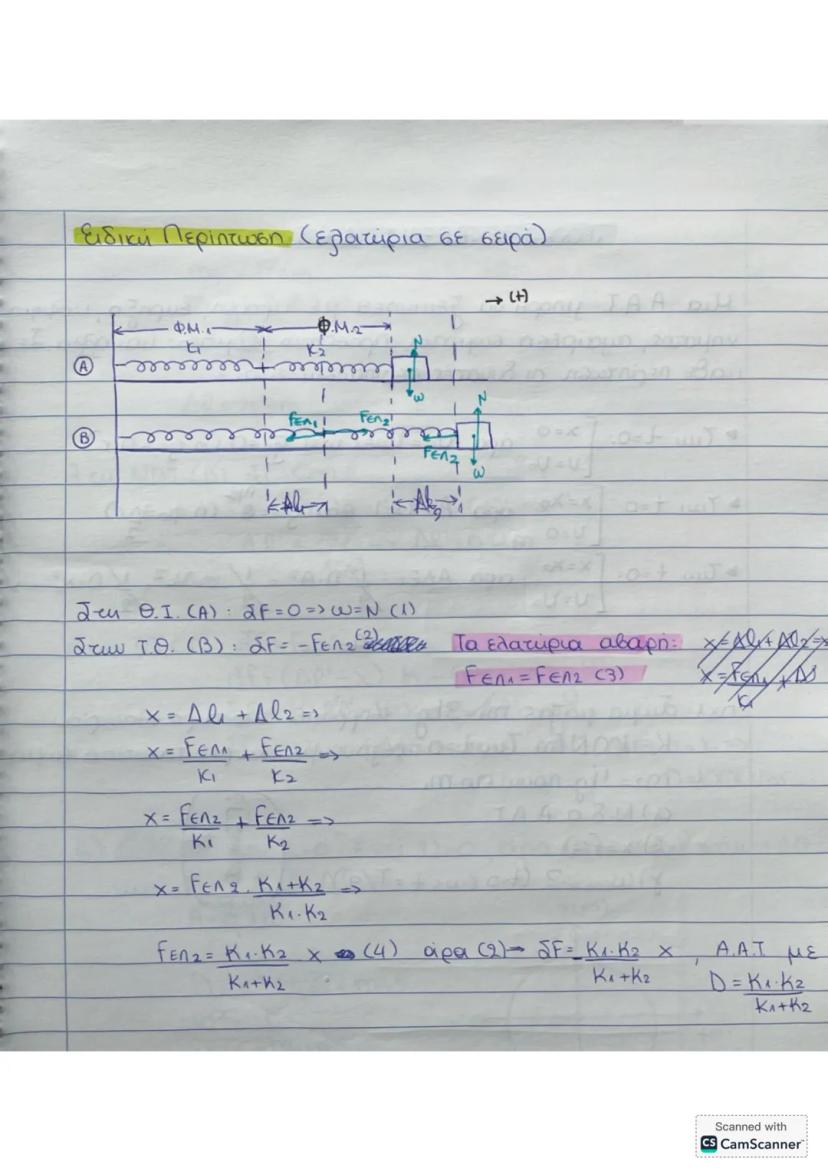 Ειδική Περίπτωση (ελατήρια σε σειρά)
→ (+)
Φ.Μ.1 Φ.Μ.2
K1 K2
Α
N
w
Β
Fελ1 Fελ2 N
Fελ2
w
Δl1 Δl2
Στη Θ.Ι. (Α) : ΣF=0 => w=N (1)
Στην Τ.Θ. (Β) : ΣF = -Fελ2 (2) Τα ελατήρια αβαρή: x=Δl1+Δl2=>
Fελ1 = Fελ2 (3) x=Fελ1/K1 +
x = Δl1 + Δl2 =>
x = Fελ1/K1 + Fελ2/K2 =>
x = Fελ2/K1 + Fελ2/K2 =>
x = Fελ2 · K1+K2/K1·K2 =>
Fελ2 = K1·K2/K1+K2 x (4) άρα (2)→ ΣF = - K1·K2/K1+K2 x , Α.Α.Τ με
D = K1·K2/K1+K2
Scanned with
CS CamScanner